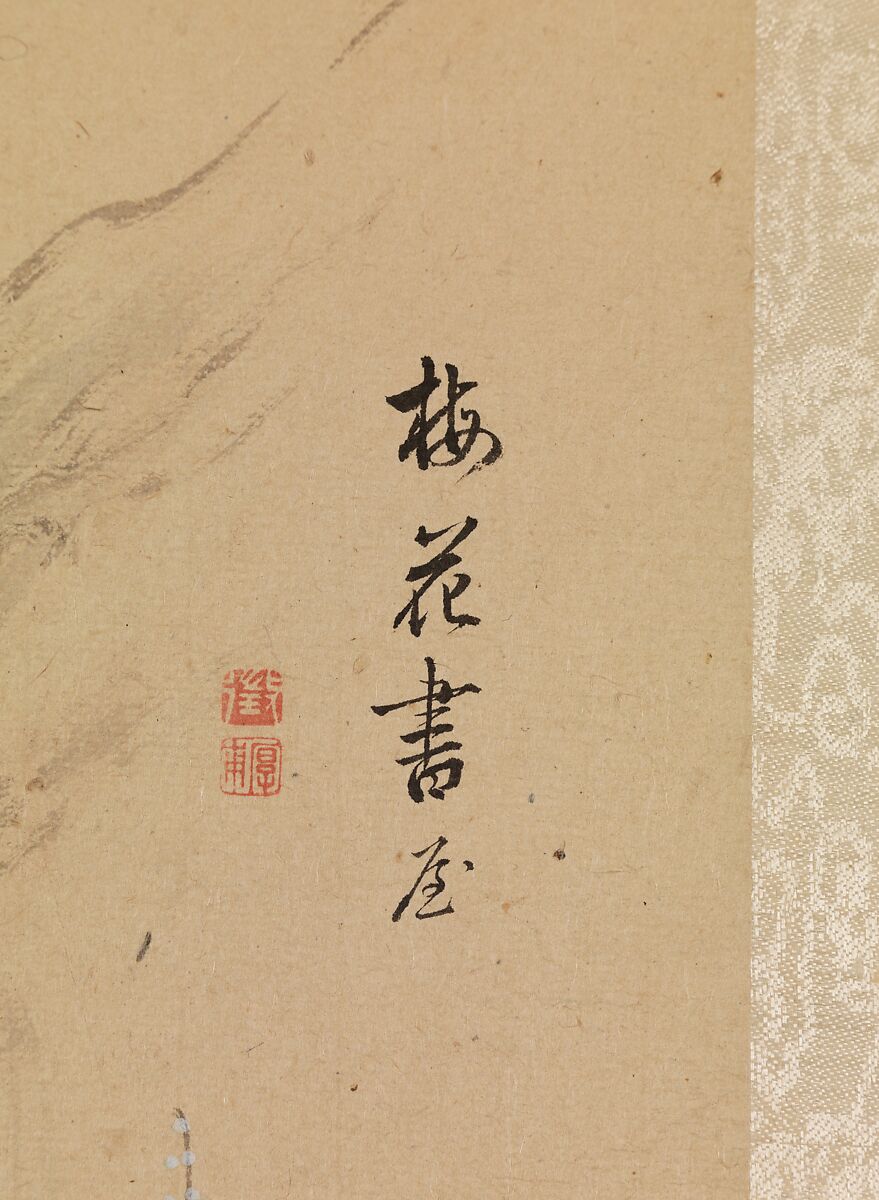 梅花書屋